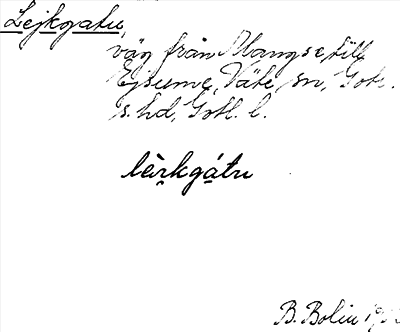 Lejkgatu,
väg från Mangse, till
Ejsume, Väte sn, Gotl.
s. hd, Gotl. l.
lèrkgátu
B. Bolin